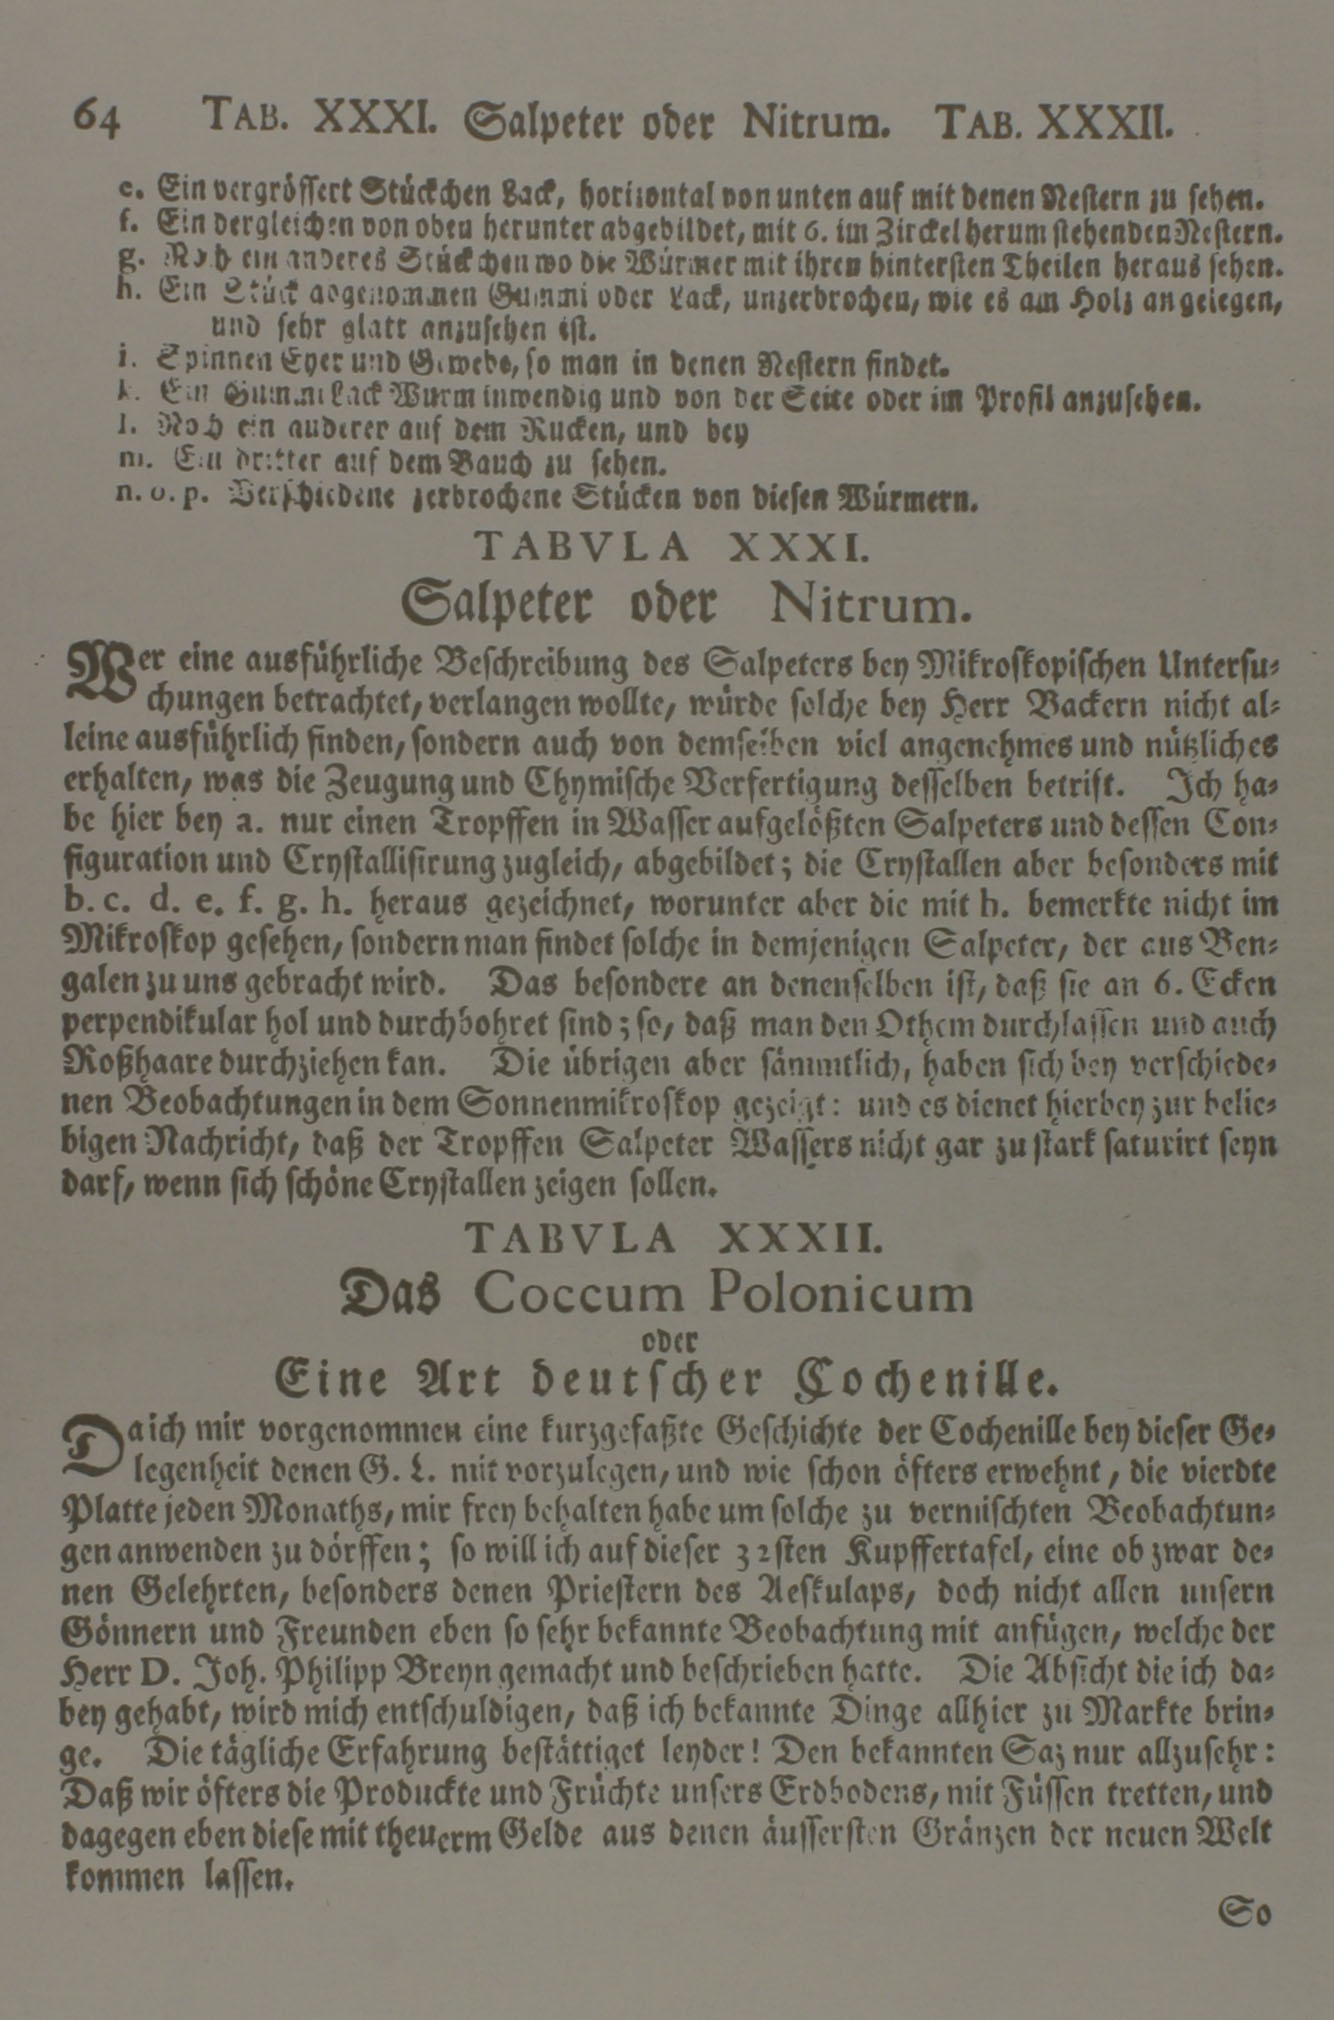 64 TAB. XXXI. Salpeter oder Nitrum. TAB. XXXII.
e. Ein vergrössert Stückchen Lack, horizontal von unten auf mit denen Nestern zu sehen.
f. Ein dergleichen von oben herunter abgebildet, mit 6. im Zirckel herum stehenden Nestern.
g. Noch ein anderes Stückchen wo die Würmer mit ihren hintersten Theilen heraus sehen.
h. Ein Stück abgenommnen Gummi oder Lack, unzerbrochen, wie es am Holz angelegen,
und sehr glatt anzusehen ist.
i. Spinnen Eyer und Gewebe, so man in denen Nestern findet.
k. Ein Gummi Lack Wurm inwendig und von der Seite oder im Profil anzusehen.
l. Noch ein anderer auf dem Rucken, und bey
m. Ein dritter auf dem Bauch zu sehen.
n. o. p. Verschiedene zerbrochene Stücken von diesen Würmern.
TABVLA XXXI.
Salpeter oder Nitrum.
Wer eine ausführliche Beschreibung des Salpeters bey Mikroskopischen Untersu-
chungen betrachtet, verlangen wollte, würde solche bey Herr Backern nicht al-
leine ausführlich finden, sondern auch von demselben viel angenehmes und nützliches
erhalten, was die Zeugung und Chymische Verfertigung desselben betrift. Ich ha-
be hier bey a. nur einen Tropffen in Wasser aufgelößten Salpeters und dessen Con-
figuration und Crystallisirung zugleich, abgebildet; die Crystallen aber besonders mit
b. c. d. e. f. g. h. heraus gezeichnet, worunter aber die mit h. bemerkte nicht im
Mikroskop gesehen, sondern man findet solche in demjenigen Salpeter, der aus Ben-
galen zu uns gebracht wird. Das besondere an denenselben ist, daß sie an 6. Ecken
perpendikular hol und durchbohret sind; so, daß man den Othem durchlassen und auch
Roßhaare durchziehen kan. Die übrigen aber sämmtlich, haben sich bey verschiede-
nen Beobachtungen in dem Sonnenmikroskop gezeigt: und es dienet hierbey zur belie-
bigen Nachricht, daß der Tropffen Salpeter Wassers nicht gar zu stark saturirt seyn
darf, wenn sich schöne Crystallen zeigen sollen.
TABVLA XXXII.
Das Coccum Polonicum
oder
Eine Art deutscher Cochenille.
Da ich mir vorgenommen eine kurzgefaßte Geschichte der Cochenille bey dieser Ge-
legenheit denen G. L. mit vorzulegen, und wie schon öfters erwehnt, die vierdte
Platte jeden Monaths, mir frey behalten habe um solche zu vermischten Beobachtun-
gen anwenden zu dörffen; so will ich auf dieser 32sten Kupffertafel, eine ob zwar de-
nen Gelehrten, besonders denen Priestern des Aeskulaps, doch nicht allen unsern
Gönnern und Freunden eben so sehr bekannte Beobachtung mit anfügen, welche der
Herr D. Joh. Philipp Breyn gemacht und beschrieben hatte. Die Absicht die ich da-
bey gehabt, wird mich entschuldigen, daß ich bekannte Dinge allhier zu Markte brin-
ge. Die tägliche Erfahrung bestättiget leyder! Den bekannten Saz nur allzusehr:
Daß wir öfters die Produckte und Früchte unsers Erdbodens, mit Füssen tretten, und
dagegen eben diese mit theuerm Gelde aus denen äussersten Gränzen der neuen Welt
kommen lassen.
So